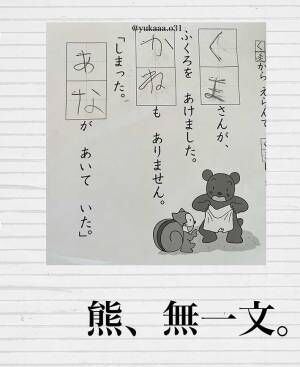 @yukaaa.o31
から えらんで
くまさんが、
ふくろを あけました。
かねも ありません。
「しまった。
あなが あいて いた。」
熊、無一文。